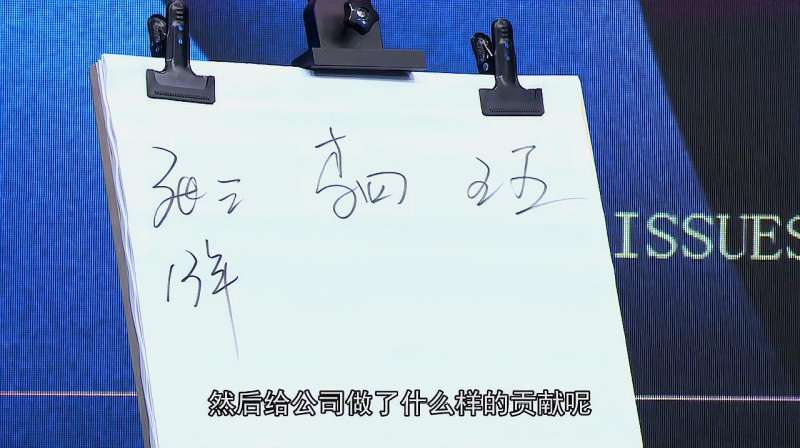 张三 李四 王五
13年
ISSUES
然后给公司做了什么样的贡献呢